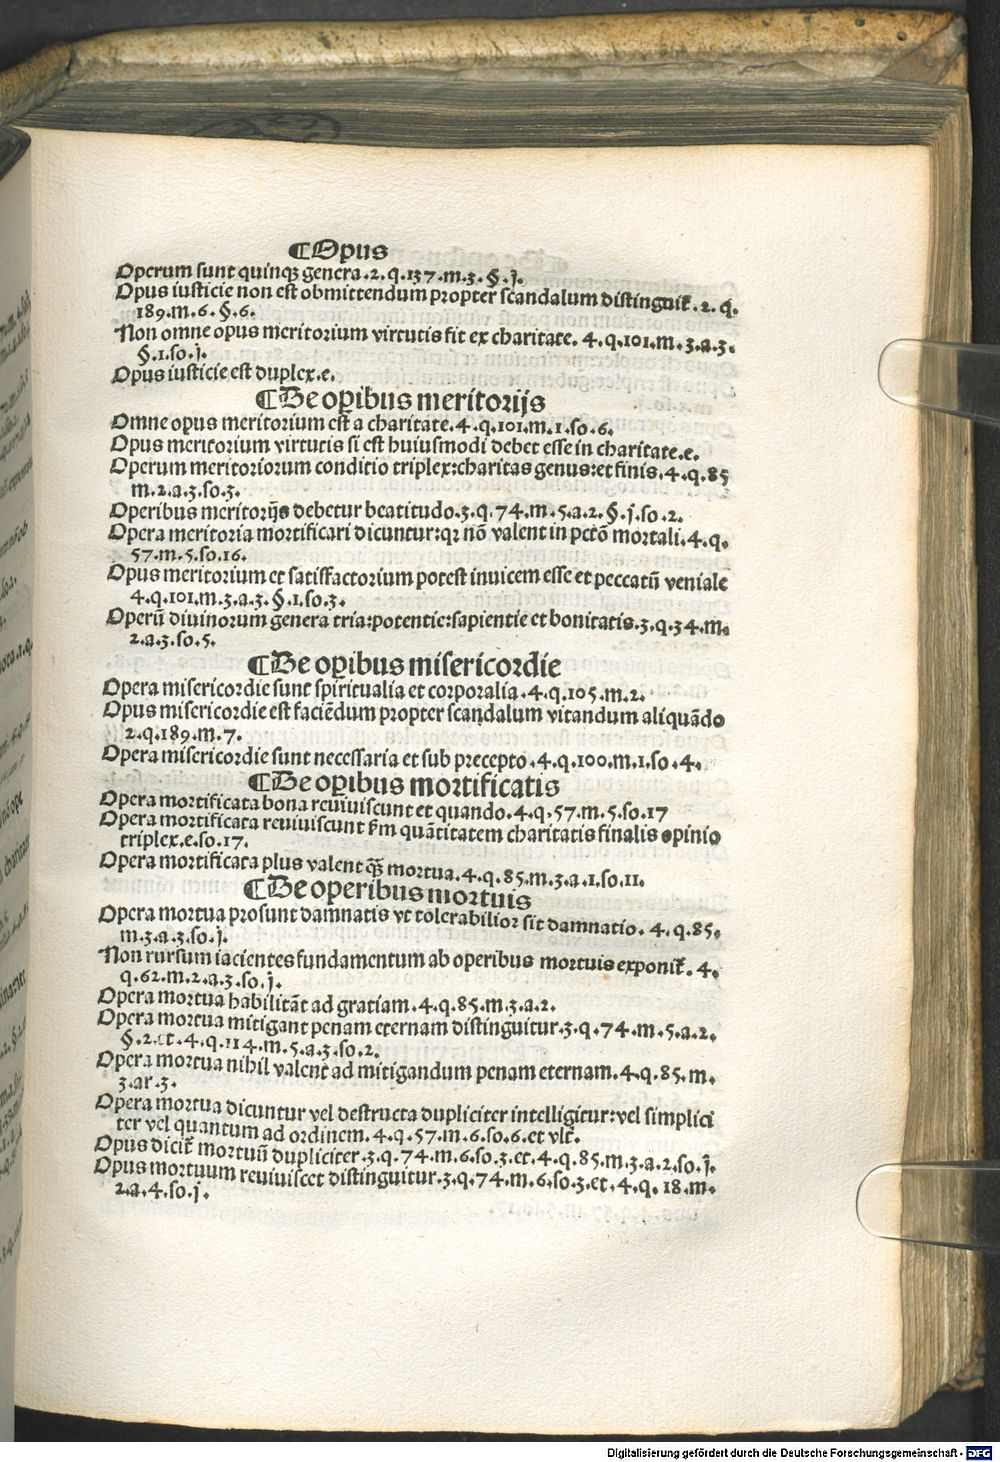 ¶Opus
Operum sunt quinqꝫ genera.2.q.137.m.3.§.j.
Opus iusticie non est obmittendum propter scandalum distinguiť.2.q.
189.m.6.§.6.
Non omne opus meritorium virtutis fit ex charitate. 4.q.101.m.3.a.3.
§.1.so.j.
Opus iusticie est duplex.e.
¶De oꝑibus meritorijs
Omne opus meritorium est a charitate.4.q.101.m.1.so.6.
Opus meritorium virtutis si est huiusmodi debet esse in charitate.e.
Operum meritoriorum conditio triplex:charitas genus:et finis.4.q.85
m.2.a.3.so.3.
Operibus meritorijs debetur beatitudo.3.q.74.m.5.a.2.§.j.so.2.
Opera meritoria mortificari dicuntur:qꝛ nō valent in pctō mortali.4.q.
57.m.5.so.16.
Opus meritorium et satisfactorium potest inuicem esse et peccatū veniale
4.q.101.m.3.a.3.§.1.so.3.
Operū diuinorum genera tria:potentie:sapientie et bonitatis.3.q.34.m.
2.a.3.so.5.
¶De oꝑibus misericordie
Opera misericordie sunt spiritualia et corporalia.4.q.105.m.2.
Opus misericordie est faciēdum propter scandalum vitandum aliquādo
2.q.189.m.7.
Opera misericordie sunt necessaria et sub precepto.4.q.100.m.1.so.4.
¶De oꝑibus mortificatis
Opera mortificata bona reuiuiscunt et quando.4.q.57.m.5.so.17
Opera mortificata reuiuiscunt ẜm quātitatem charitatis finalis opinio
triplex.e.so.17.
Opera mortificata plus valent qꝫ̄ mortua.4.q.85.m.3.a.1.so.11.
¶De operibus mortuis
Opera mortua prosunt damnatis vt tolerabilior sit damnatio.4.q.85.
m.3.a.3.so.j.
Non rursum iacientes fundamentum ab operibus mortuis exponiť.4.
q.62.m.2.a.3.so.j.
Opera mortua habilitāt ad gratiam.4.q.85.m.3.a.2.
Opera mortua mitigant penam eternam distinguitur.3.q.74.m.5.a.2.
§.2.et.4.q.114.m.5.a.3.so.2.
Opera mortua nihil valent ad mitigandum penam eternam.4.q.85.m.
3.ar.3.
Opera mortua dicuntur vel destructa dupliciter intelligitur:vel simplici
ter vel quantum ad ordinem.4.q.57.m.6.so.6.et vlť.
Opus diciť mortuū dupliciter.3.q.74.m.6.so.3.et.4.q.85.m.3.a.2.so.j.
Opus mortuum reuiuiscet distinguitur.3.q.74.m.6.so.3.et.4.q.18.m.
2.a.4.so.j.
Digitalisierung gefördert durch die Deutsche Forschungsgemeinschaft - DFG